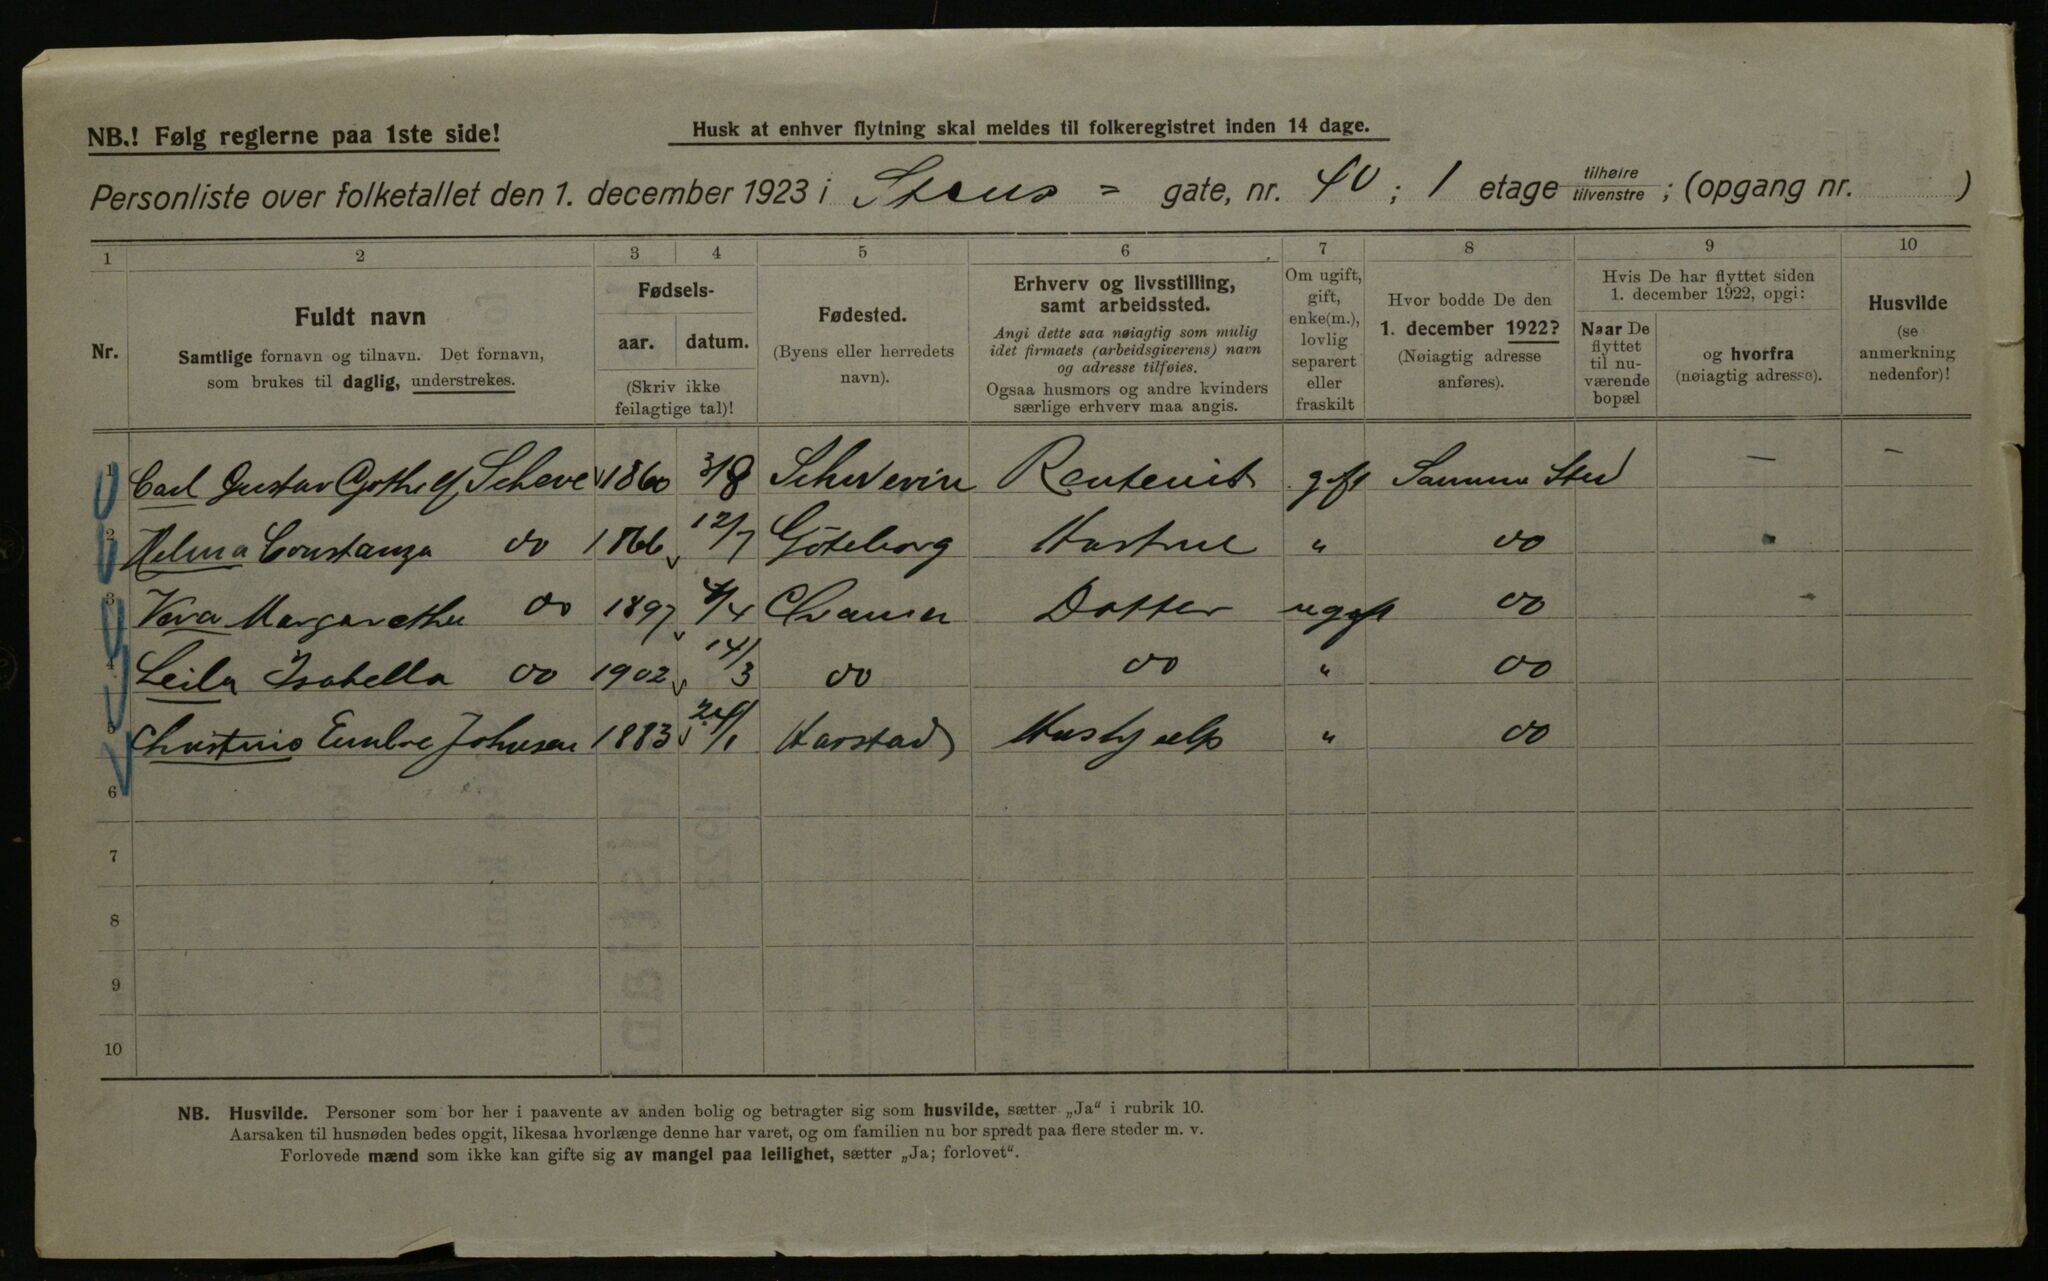 NB.! Følg reglerne paa 1ste side!
Husk at enhver flytning skal meldes til folkeregistret inden 14 dage.
Personliste over folketallet den 1. december 1923 i Stens = gate, nr. 40 ; 1 etage tilhøire tilvenstre ; (opgang nr. )
1 2 3 4 5 6 7 8 9 10
Nr.
Fuldt navn
Samtlige fornavn og tilnavn. Det fornavn,
som brukes til daglig, understrekes.
Fødsels-
aar. datum.
(Skriv ikke
feilagtige tal)!
Fødested.
(Byens eller herredets
navn).
Erhverv og livsstilling,
samt arbeidssted.
Angi dette saa nøiagtig som mulig
idet firmaets (arbeidsgiverens) navn
og adresse tilføies.
Ogsaa husmors og andre kvinders
særlige erhverv maa angis.
Om ugift,
gift,
enke(m.),
lovlig
separert
eller
fraskilt
Hvor bodde De den
1. december 1922?
(Nøiagtig adresse
anføres).
Hvis De har flyttet siden
1. december 1922, opgi:
Naar De
flyttet
til nu-
værende
bopæl
og hvorfra
(nøiagtig adresse).
Husvilde
(se
anmerkning
nedenfor)!
1 Carl Gustav Gothelf Scheve 1860 3/8 Schwerin Rentenist gift Samme Sted — —
2 Helma Constanza do 1866 12/7 Göteborg Hustrue " do
3 Vera Margarethe do 1897 /4 Chania Datter ugift do -
4 Leila Isabella do 1902 14/3 do do " do
5 Johnsen 1883 24/1 Harstad Hushjælp " do
6
7
8
9
10
NB. Husvilde. Personer som bor her i paavente av anden bolig og betragter sig som husvilde, sætter „Ja“ i rubrik 10.
Aarsaken til husnøden bedes opgit, likesaa hvorlænge denne har varet, og om familien nu bor spredt paa flere steder m. v.
Forlovede mænd som ikke kan gifte sig av mangel paa leilighet, sætter „Ja; forlovet“.